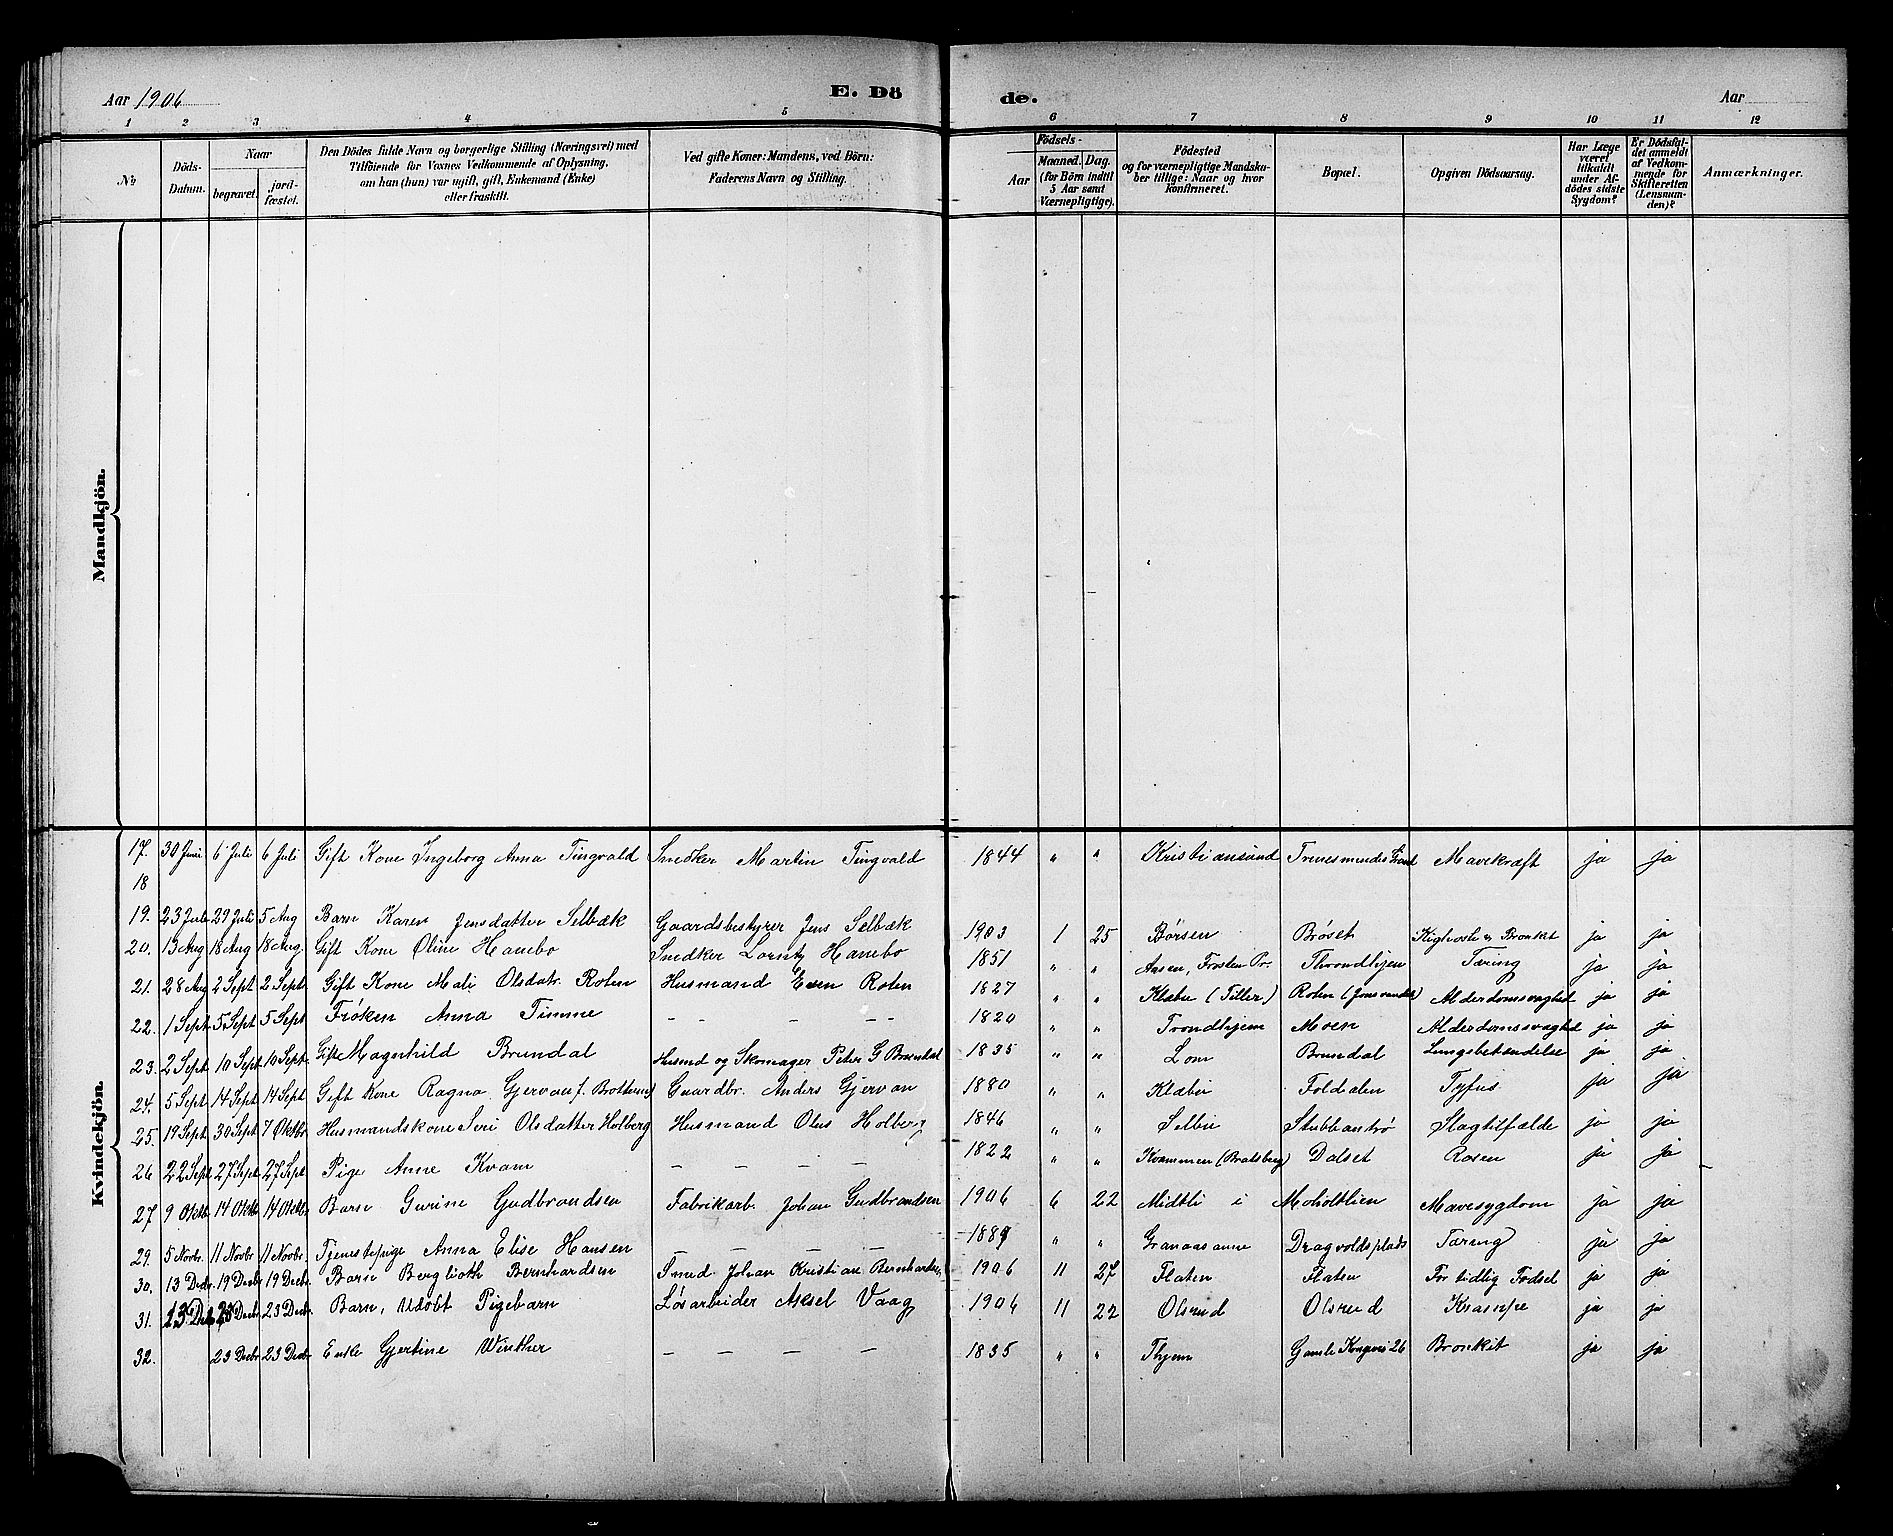 Aar 1906 E. Dö de. Aar
1 2 3 4 5 6 7 8 9 10 11 12
№ Döds-Datum. Naar begravet. jord-fæstet. Den Dödes fulde Navn og borgerlige Stilling (Næringsvei) med Tilföiende for Voxnes Vedkommende af Oplysning, om han (hun) var ugift, gift, Enkemand (Enke) eller fraskilt. Ved gifte Koner: Mandens, ved Börn: Faderens Navn og Stilling. Födsels- Aar Maaned. Dag. (for Börn indtil 5 Aar samt Værnepligtige). Födested og for værnepligtige Mandska-ber tillige: Naar og hvor konfirmeret. Bopæl. Opgiven Dödsaarsag. Har Læge været tilkaldt under Af-dödes sidste Sygdom? Er Dödsfal-det anmeldt af Vedkom-mende for Skifteretten (Lensman-den)? Anmærkninger.
Mandkjön.
Kvindekjön.
17. 30 Juni 6 Juli 6 Juli Gift Kone Ingeborg Anna Tingvald Snedker Martin Tingvald 1844 " " Kristiansund Mavekræft ja ja
18
19. 23 Juli 29 Juli 5 Aug Barn Karen Jensdatter Selbæk Gaardsbestyrer Jens Selbæk 1903 1 25 Børsen Brøset Kighoste & Bronkit ja ja
20. 13 Aug 18 Aug 18 Aug. Gift Kone Oline Hanebo Snedker Lorntz Hanebo 1851 " " Aasen, Frosten Pr. Throndhjem Tæring ja ja
21. 28 Aug 2 Sept 2 Sept Gift Kone Mali Olsdatr. Roten Husmand Even Roten 1827 " " Klæbu (Tiller) Roten (Jonsvandet) Alderdomssvaghed ja ja
22. 1 Sept 5 Sept 5 Sept Frøken Anna Timme – – – – – 1820 " " Trondhjem Moen Alderdomssvaghed ja ja
23. 2 Sept 10 Sept 10 Sept. Gift Magnhild Brundal Husmd og Skomager Peter G Brundal 1835 " " Lom Brundal Lungebetændelse ja ja
24. 5 Sept 14 Sept 14 Sept Gift Kone Ragna Gjervan f. Gaardbr. Anders Gjervan 1880 " " Klæbu Foldalen Tyfus ja ja
25. 19 Sept 30 Sept 7 Oktbr Husmandskone Siri Olsdatter Holberg Husmand Oles Holberg 1846 " " Selbu Stubbantrø Slagtilfælde ja ja
26 22 Sept 27 Sept 27 Sept Pige Anne Kvam – – – – 1822 " " Kvammen (Bratsberg) Dalset Rosen ja ja
27 9 Oktb. 14 Oktb 14 Oktbr. Barn Gurine Gudbrandsen Fabrikarb. Johan Gudbrandsen 1906 6 22 Midtli i Moholtlien Mavesygdom ja ja
29. 5 Novbr. 11 Novbr 11 Novbr. Tjenestepige Anna Elise Hansen – – – – 1889 " " Granaasanne Dragvoldsplads Tæring ja ja
30. 13 Decbr. 19 Decbr 19 Decbr. Barn Berglioth Bernhardsen Smed Johan Kristian Bernhardsen 1906 11 27 Flaten Flaten For tidlig Fødsel ja ja
31. 13 Decb 23 Decbr. 23 Decbr. Barn, Udøbt Pigebarn Løsarbeider Aksel Vaag 1906 11 22 Olsrud Olsrud Krampe ja ja
32. 23 Decbr 23 Decbr Enke Gjertine Winther – – – – 1835 " " Thjem Gamle Kongevei 26 Bronkit ja ja